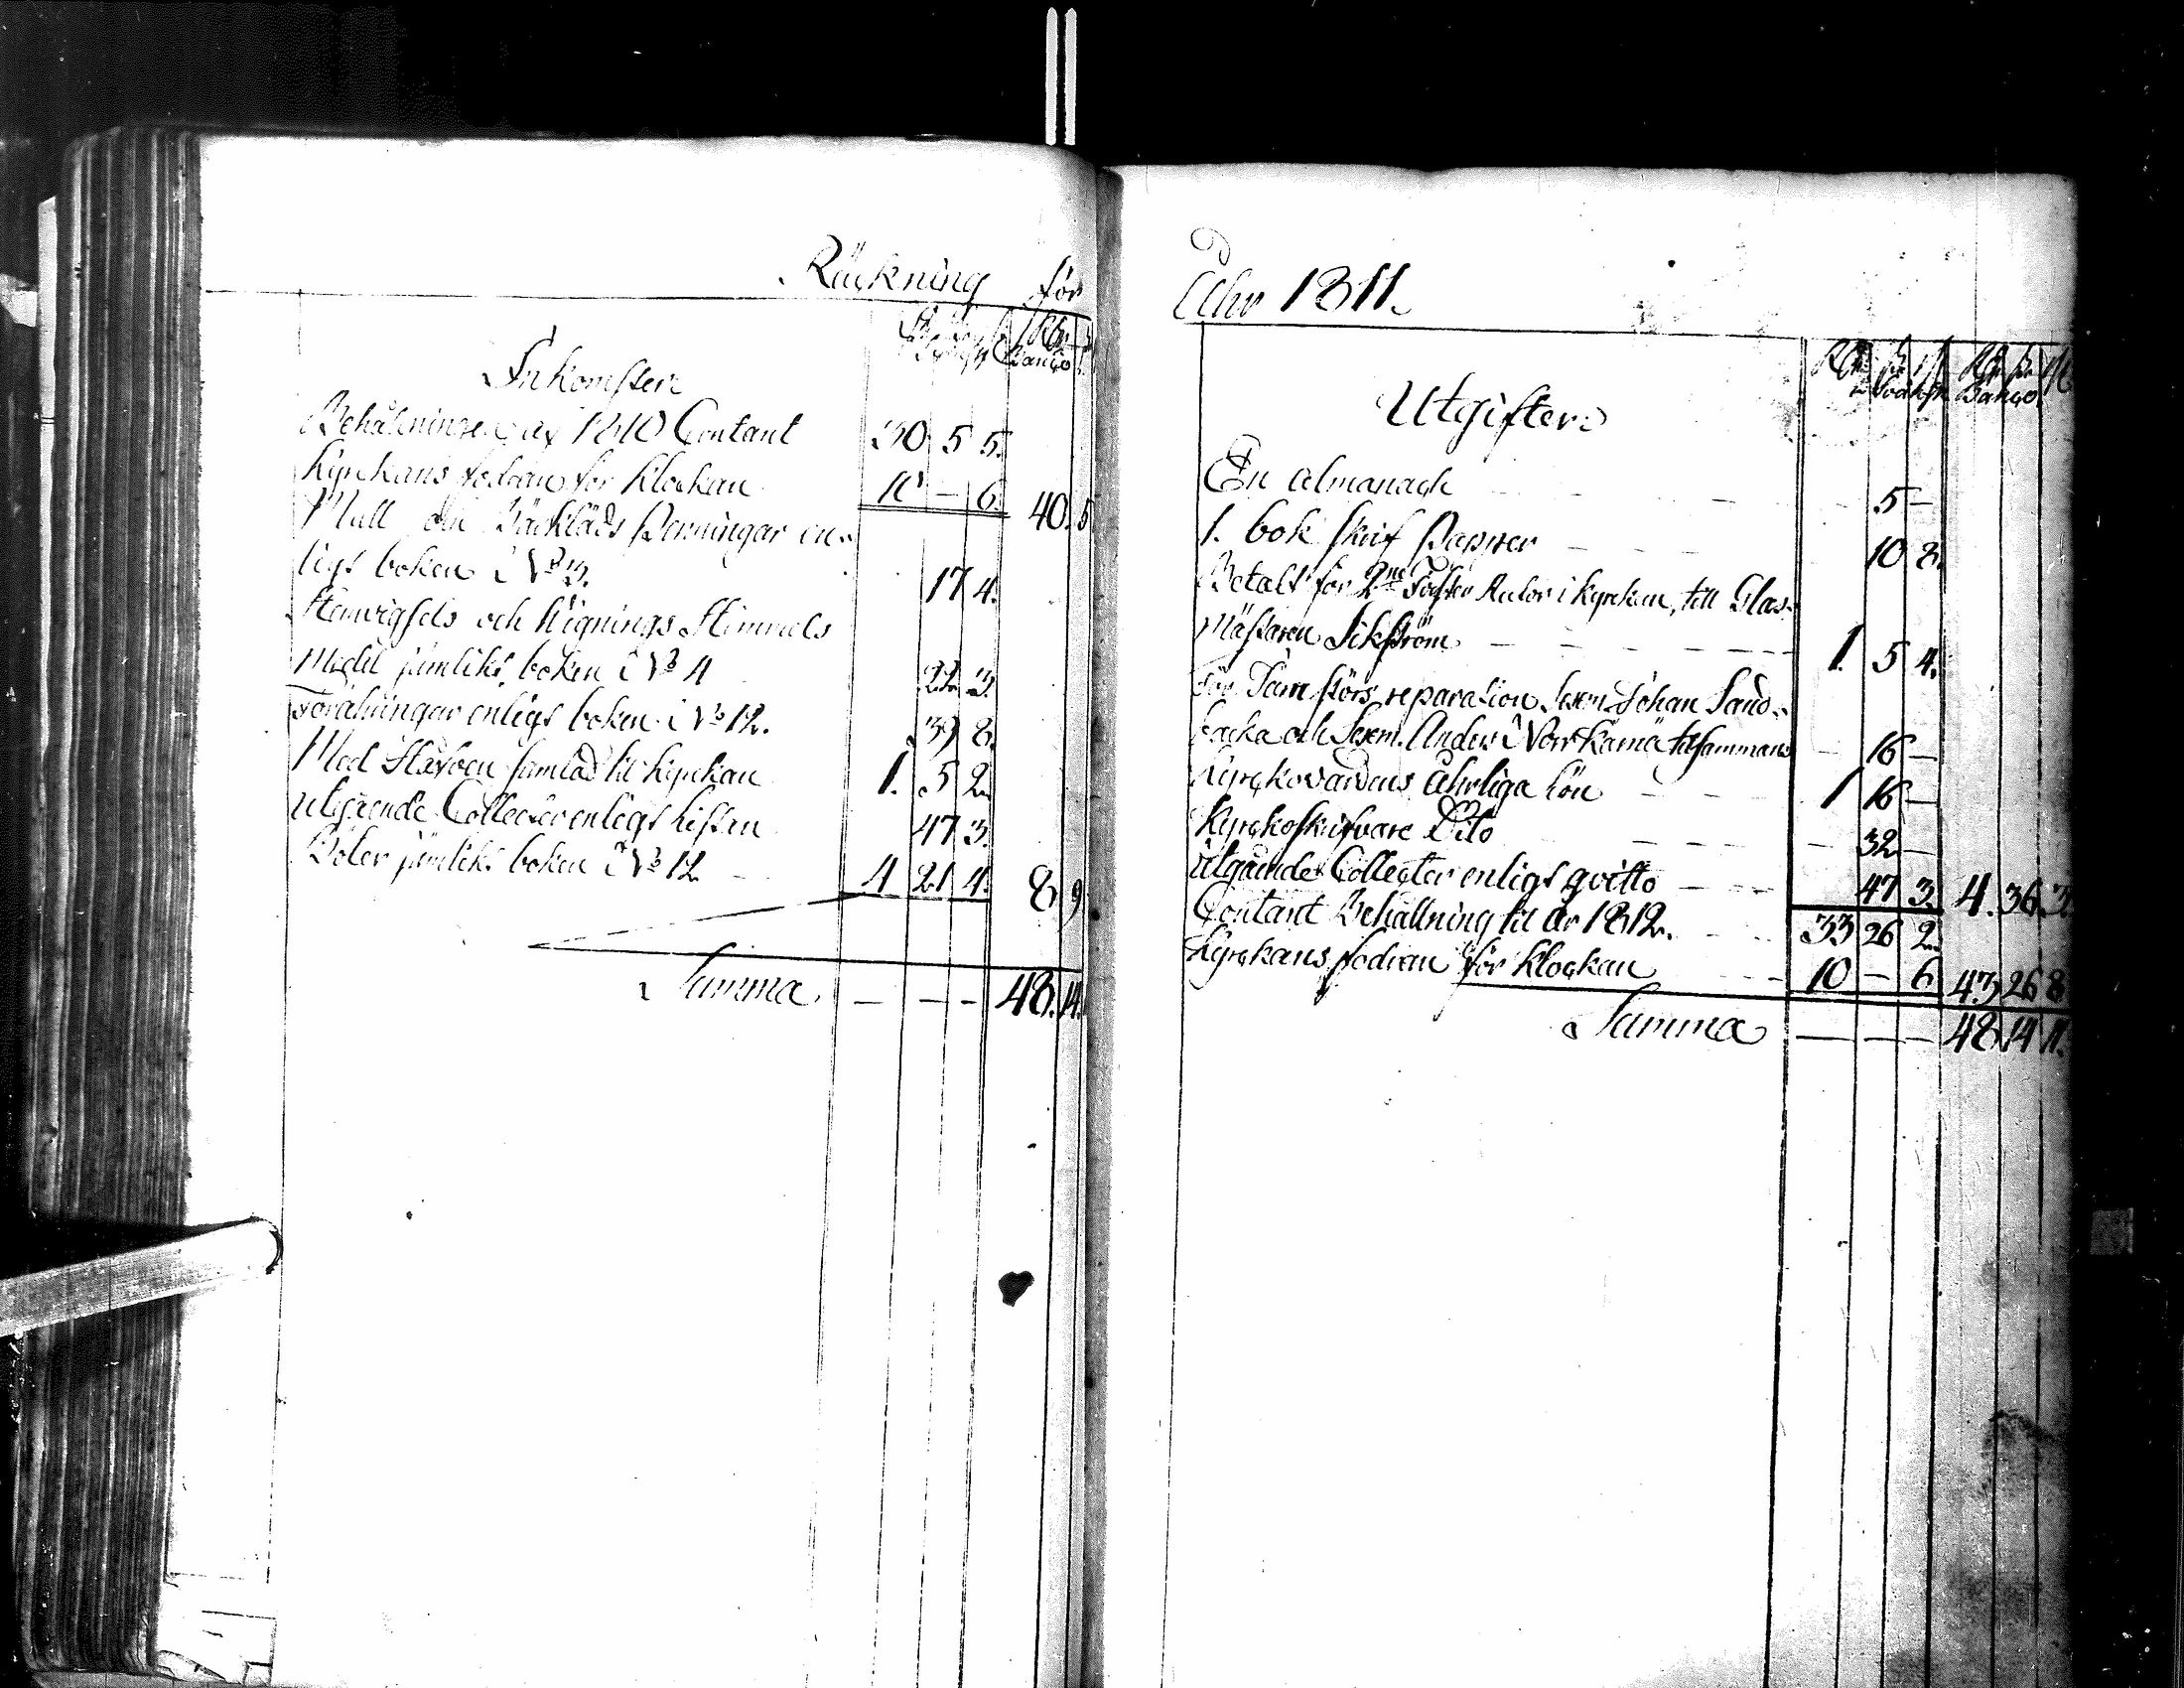 Räckning för
Inkomster
Behållningen af 1810 Contant 30 5 5.
Kyrckans fodran för Klockan 10 — 6. 40. 5
Mull och Bäcklads Penningar en-
ligt boken i No 3. 17 4.
Hemvigsels och Wignings Himmels
Medel jämlikt boken i No 4 22 3.
Föräringar enligt boken i No 12. 39 8.
Med Håfven samlad til kyrckan 1. 5 2.
Utgående Collecter enligt listan 47 3.
Böter jämlikt boken i No 12 4 21 4. 8 9
Summa — — — 48. 14.
Åhr 1811.
Utgifter
En almanach 5 —
1. bok skrif Papper 10 8.
Betalt för 2ne Fönster Rutor i kyrckan, till Glas-
Mästaren Sikström 1. 5 4.
För Tarm körs reparation Sexm. Johan Sand-
backa och Sexm. Anders Norrkama tilsammans — 16 —
Kyrckovärdens Åhrliga Lön 1 16 —
Kyrckoskrifvare Dito — 32 —
Utgående Collecter enligt qvitto 47 3. 4. 36. 3.
Contant Behållning til år 1812. 33 26 2.
Kyrckans fodran för Klockan 10 — 6. 43 26 8
Summa — — — 48 14 11.